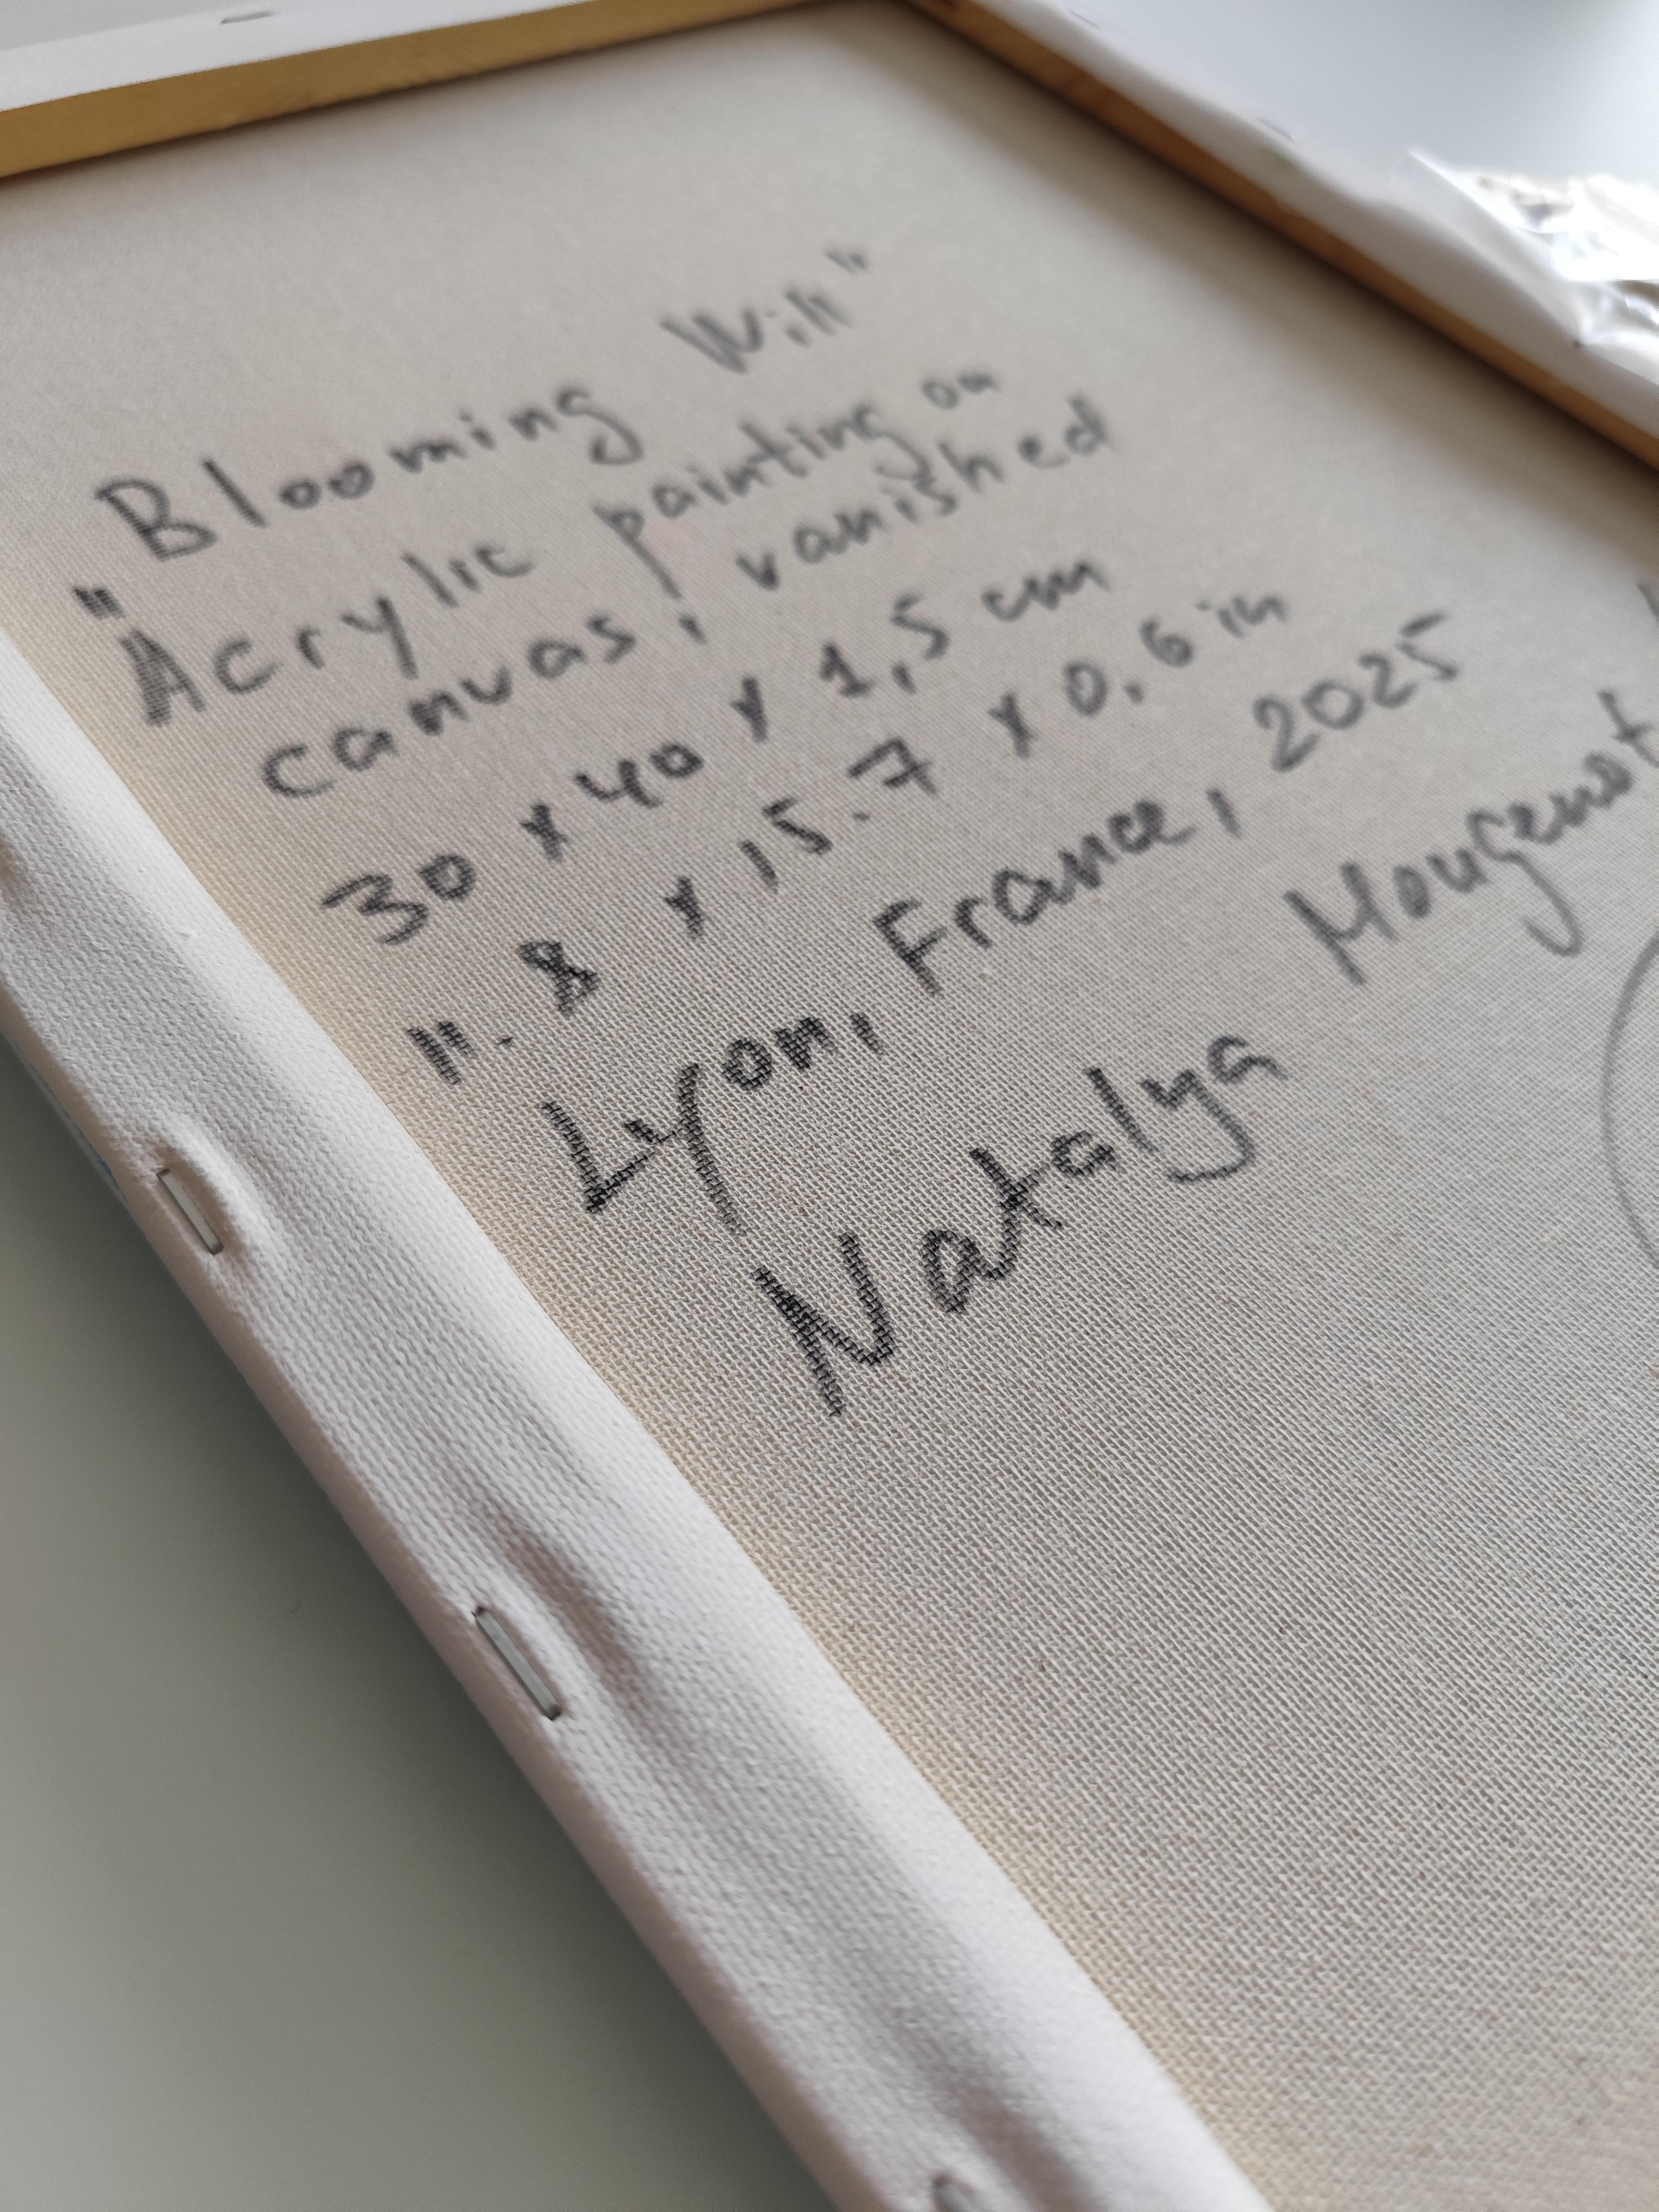 "Blooming Will"
Acrylic painting on
canvas, vanished
30 x 40 x 1,5 cm
11.8 x 15.7 x 0,6 in
Lyon, France, 2025
Natalya Mougenot